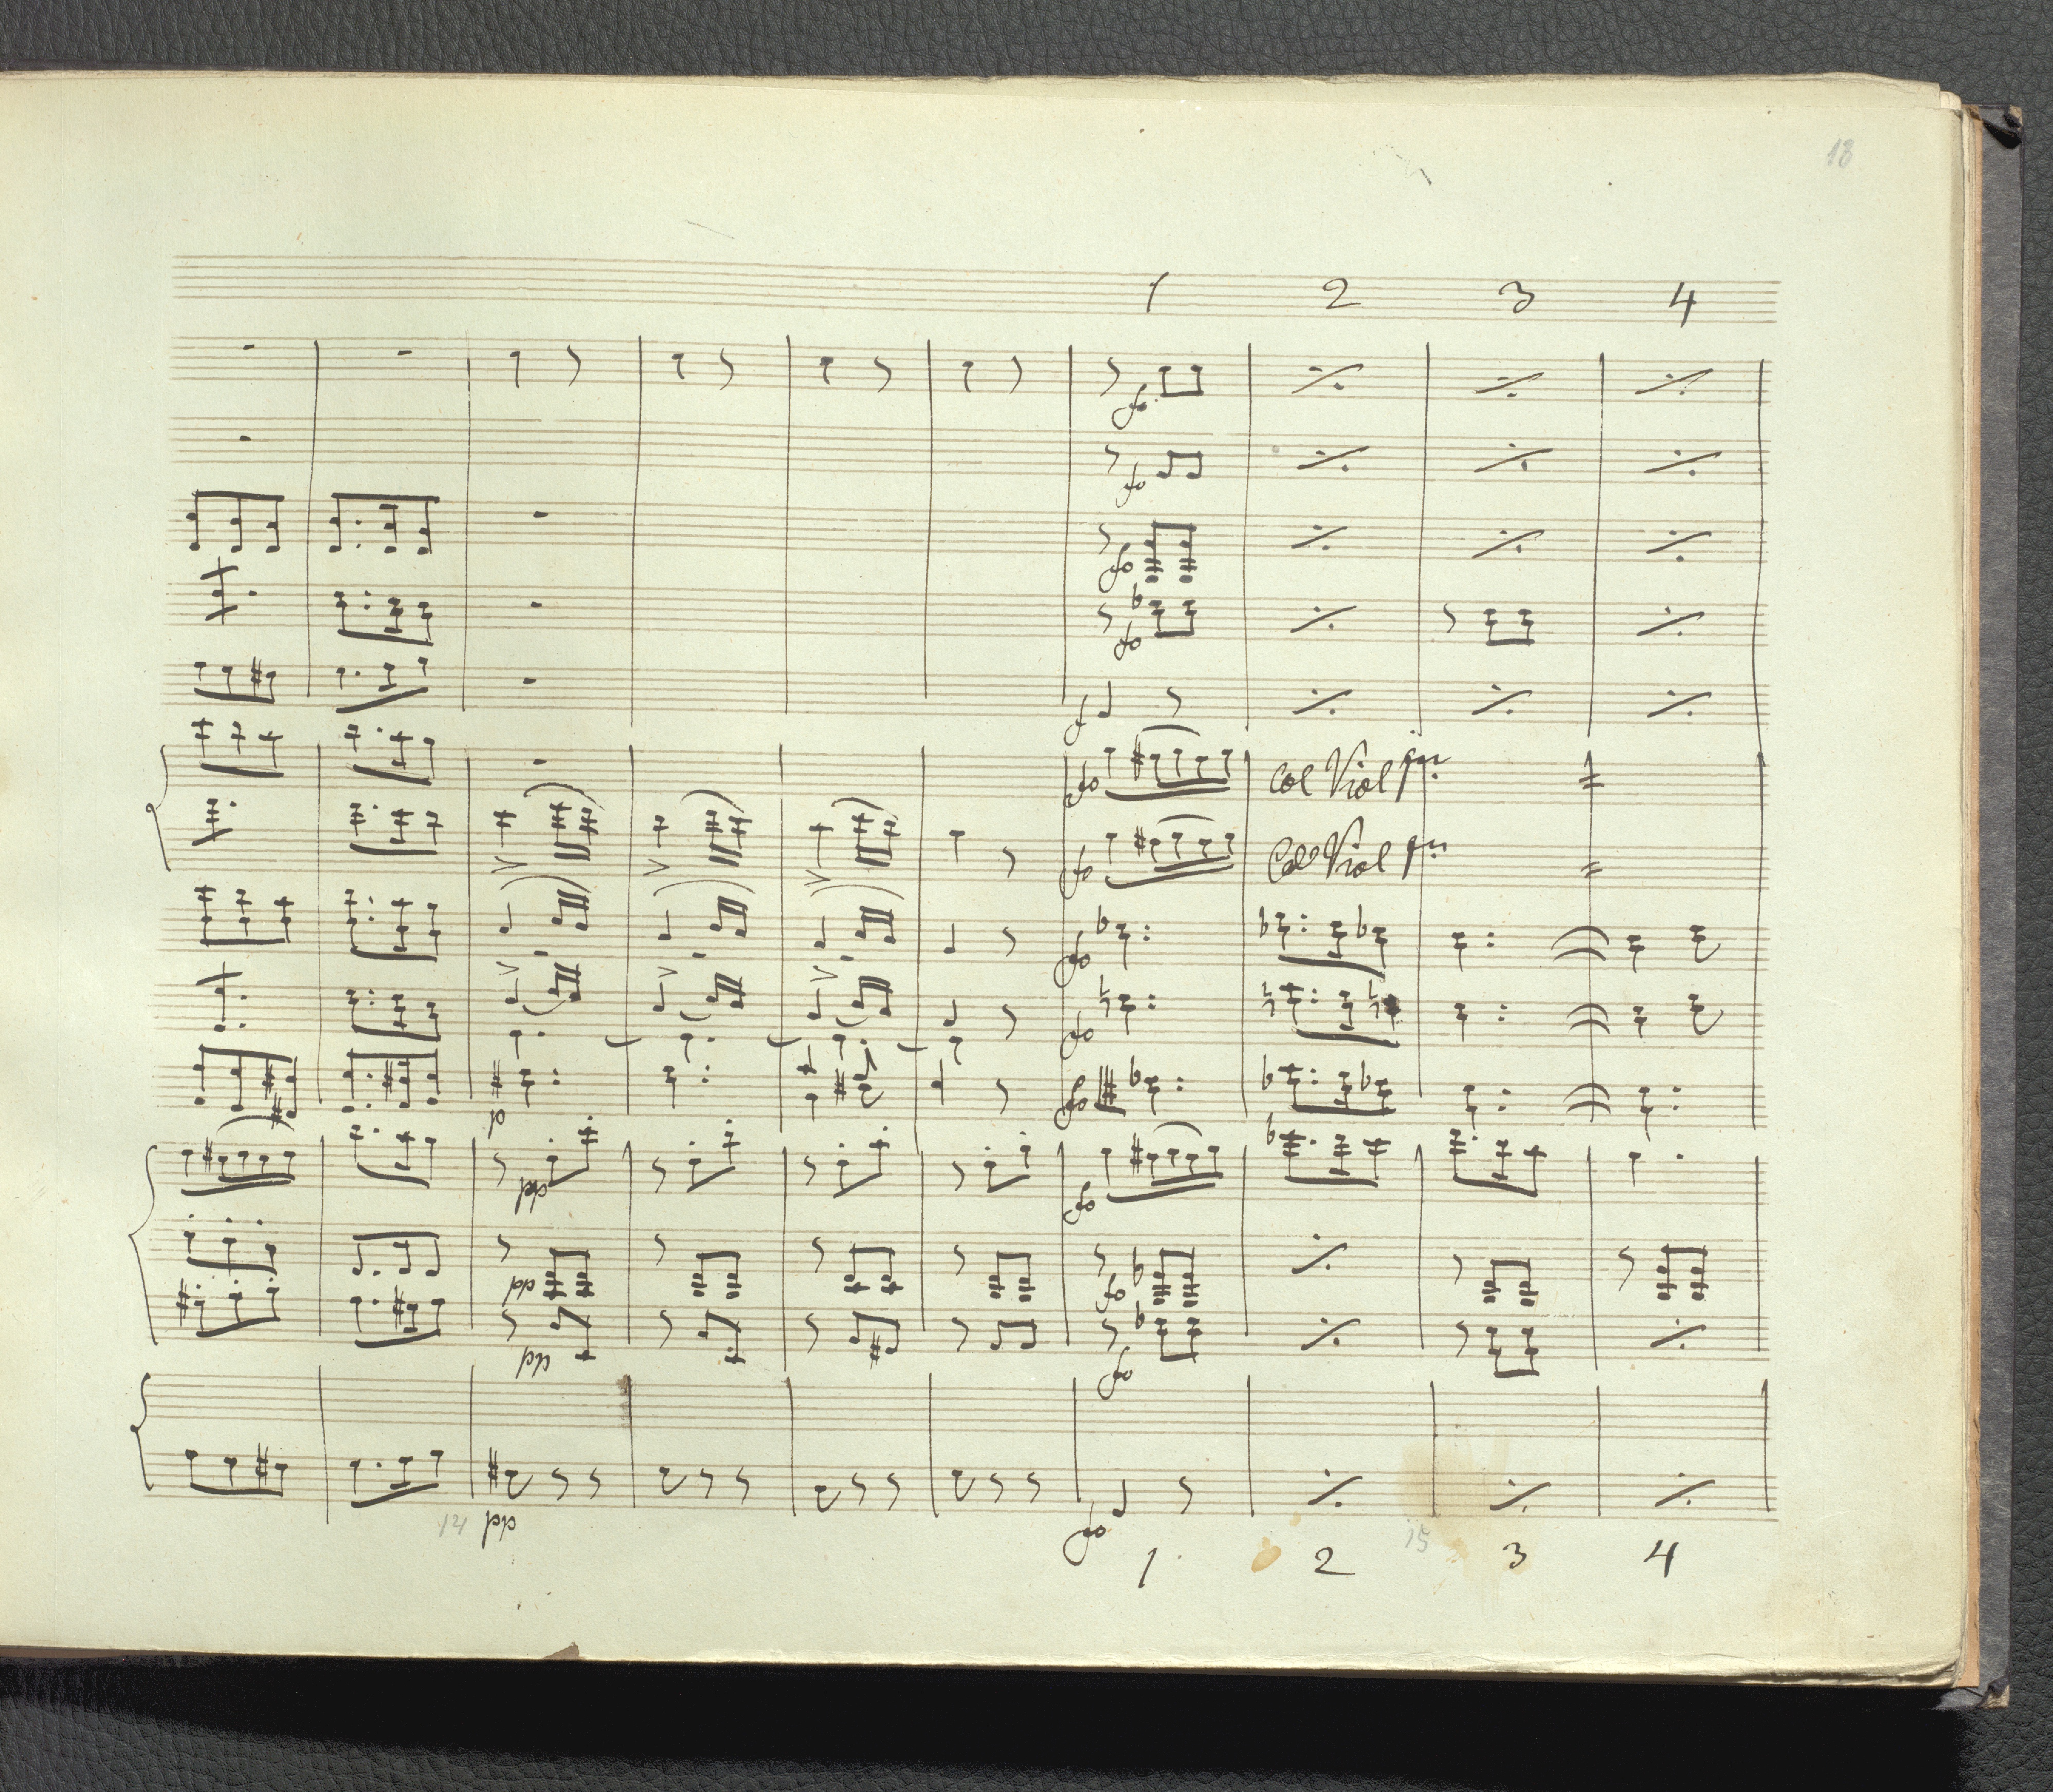 18
1 2 3 4
fo
fo
fo
fo
f
fo col Viol pmo
fo Col Viol pmo
fo
fo
p fo
pp fo
pp fo
pp fo
pp fo
14 15
1 2 3 4